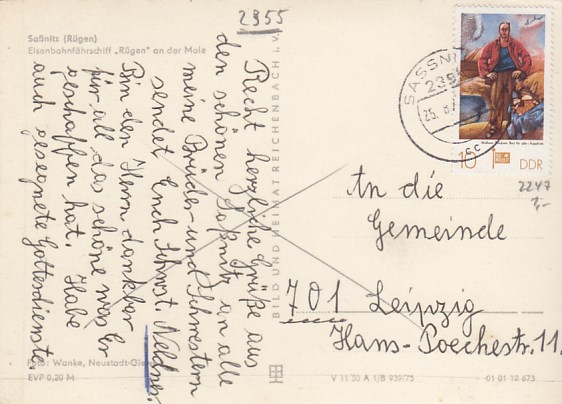 2355
Saßnitz (Rügen)
Eisenbahnfährschiff „Rügen" an der Mole
Recht herzliche Grüße aus
den schönen Saßnitz an alle
meine Brüder- und Schwestern
sendet Euch Schwst. Neldner.
Bin den Herrn dankbar
für all das schöne was Er
geschaffen hat. Habe
auch gesegnete Gottesdienste.
Foto: Wanke, Neustadt-
EVP 0,20 M
BILD UND HEIMAT REICHENBACH i. V.
SASSNITZ
10
DDR
2247
1,-
An die
Gemeinde
701 Leipzig
Hans-Poechestr. 11.
V 11 50 A 1/B 939/75
01 01 12 673